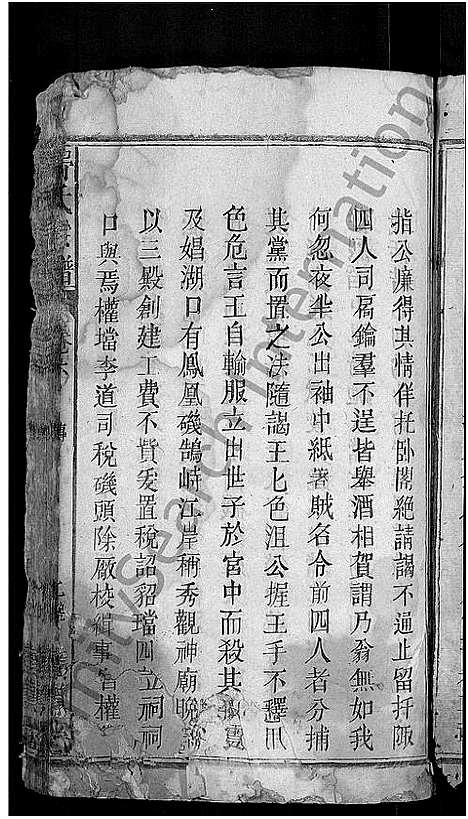 指公廉得其情佯托卧閣絕請謁不通止留扞陬
四人司扃鑰羣不逞皆舉酒相賀謂乃翁無如我
何忽夜半公出袖中紙著賊名令前四人者分捕
其黨而置之法隨謁王王色沮公握王手不釋爪
色危言王自輸服立出世子於宫中而殺其
及娼湖口有鳳凰磯鵠峙江岸稱秀觀神廟晚
以三殿創建工費不貲爰置稅詔貂璫四立祠祠
口與焉權璫李道司稅磯頭除廠校緝事
氏宗譜
UnitySearch International